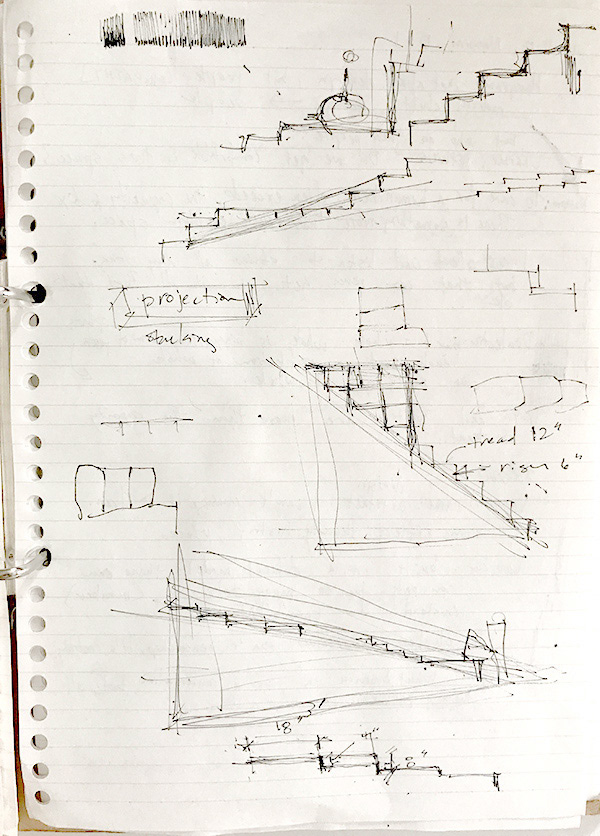 projection
stacking
tread 12"
riser 6"
18"
8"